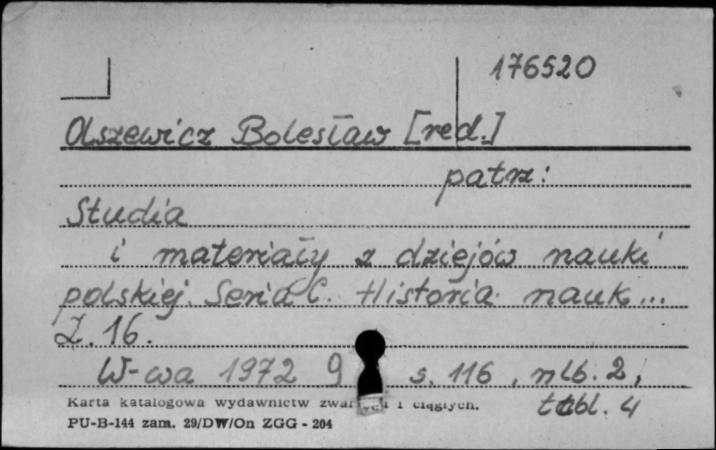 176520
Olszewicz Bolesław [red.]
patrz:
Studia
i materiały z dziejów nauki
polskiej. Seria C. Historia nauk...
Z. 16.
W-wa 1972 s. 116, nlb. 2,
tabl. 4
Karta katalogowa wydawnictw i ciągłych.
PU-B-144 zam. 29/DW/On ZGG - 204